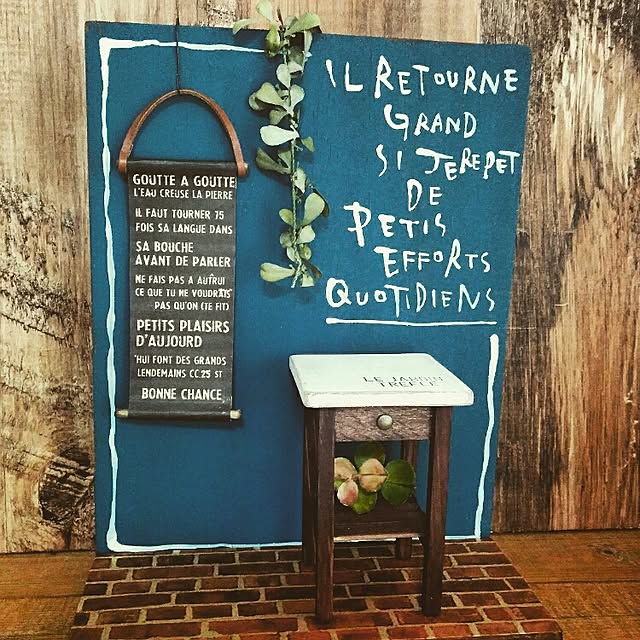 GOUTTE A GOUTTE
L'EAU CREUSE LA PIERRE
IL FAUT TOURNER 75
FOIS SA LANGUE DANS
SA BOUCHE
AVANT DE PARLER
NE FAIS PAS A AUTRUI
CE QUE TU NE VOUDRAIS
PAS QU'ON (TE FIT)
PETITS PLAISIRS
D'AUJOURD
'HUI FONT DES GRANDS
LENDEMAINS CC.25 ST
BONNE CHANCE
IL RETOURNE
GRAND
SI JEREPET
DE
PETIS
EFFORTS
QUOTIDIENS
LE JARDIN
TREFLE